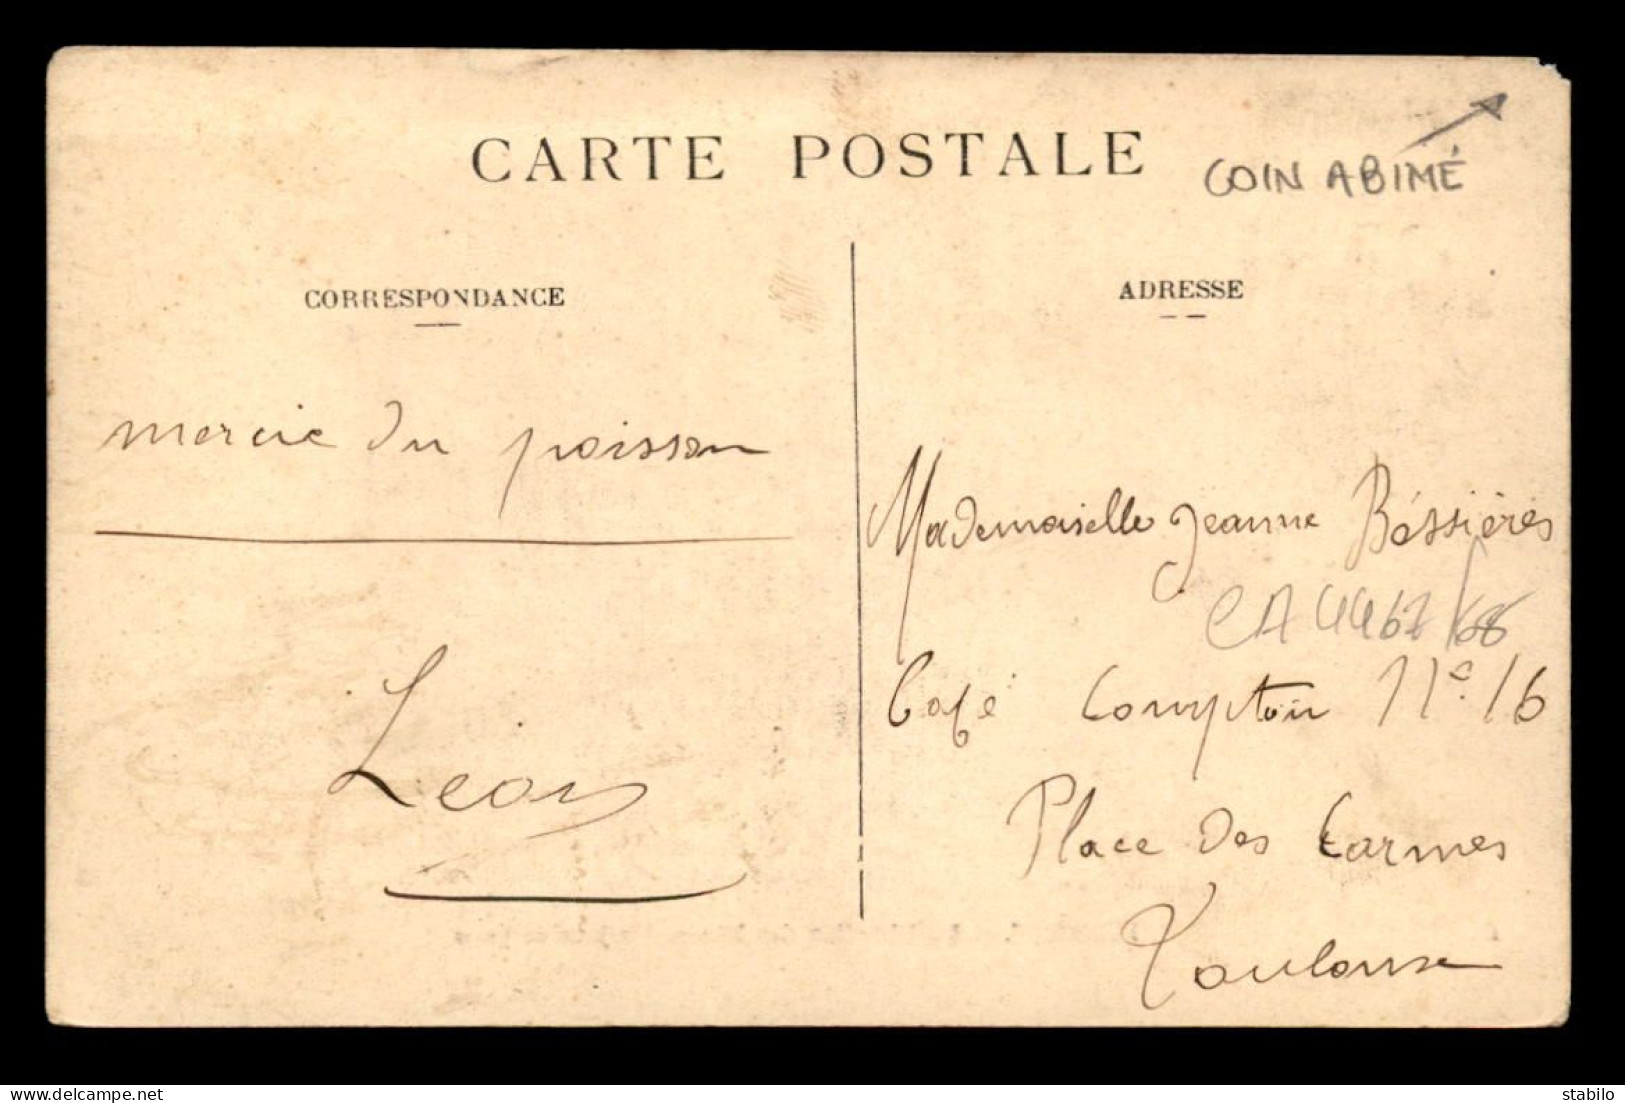 CARTE POSTALE
COIN ABIMÉ
CORRESPONDANCE
mercie du poisson
Léon
ADRESSE
Mademoiselle Jeanne Bessières
CA 4467/68
Café Compton 11e. 16
Place des Carmes
Toulouse
delcampe.net
stabilo